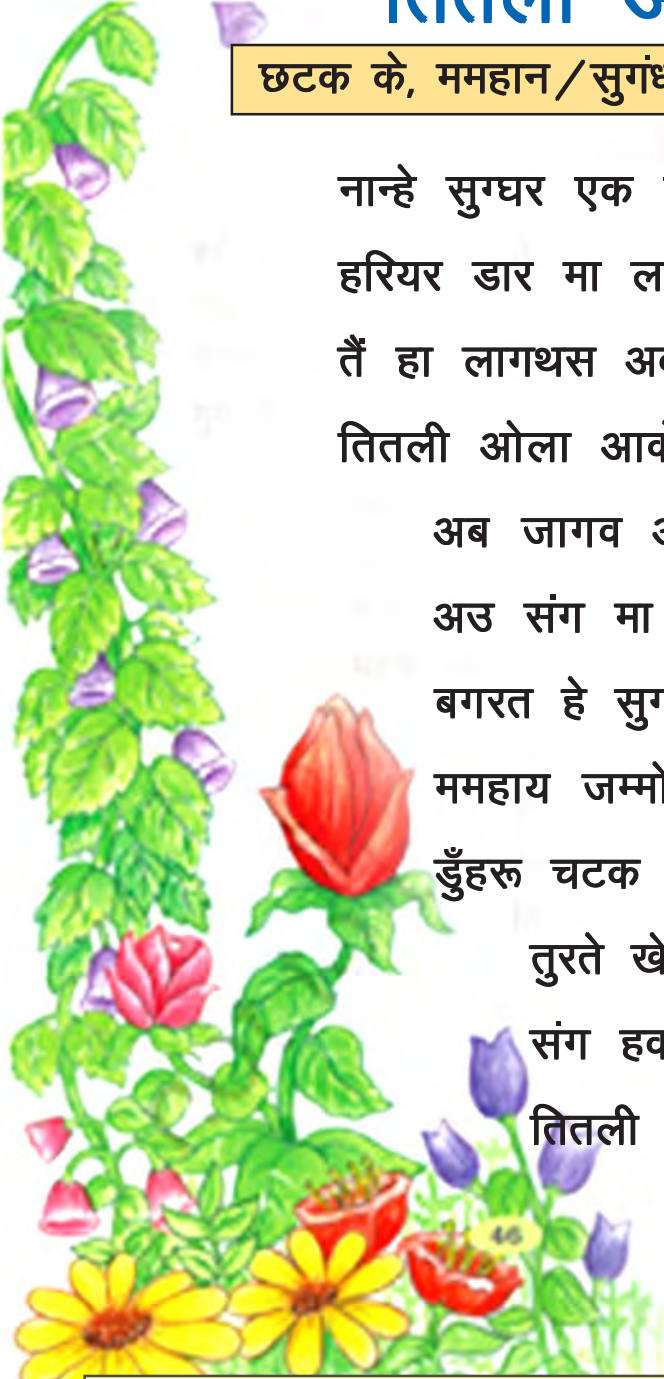 तितली
छटक के, ममहान/सुगंध
नान्हे सुग्घर एक
हरियर डार मा
तैं हा लागथस
तितली ओला
अब जागव
अउ संग मा
बगरत हे
ममहाय जम्मो
डुँहरू चटक
तुरते
संग
तितली
46